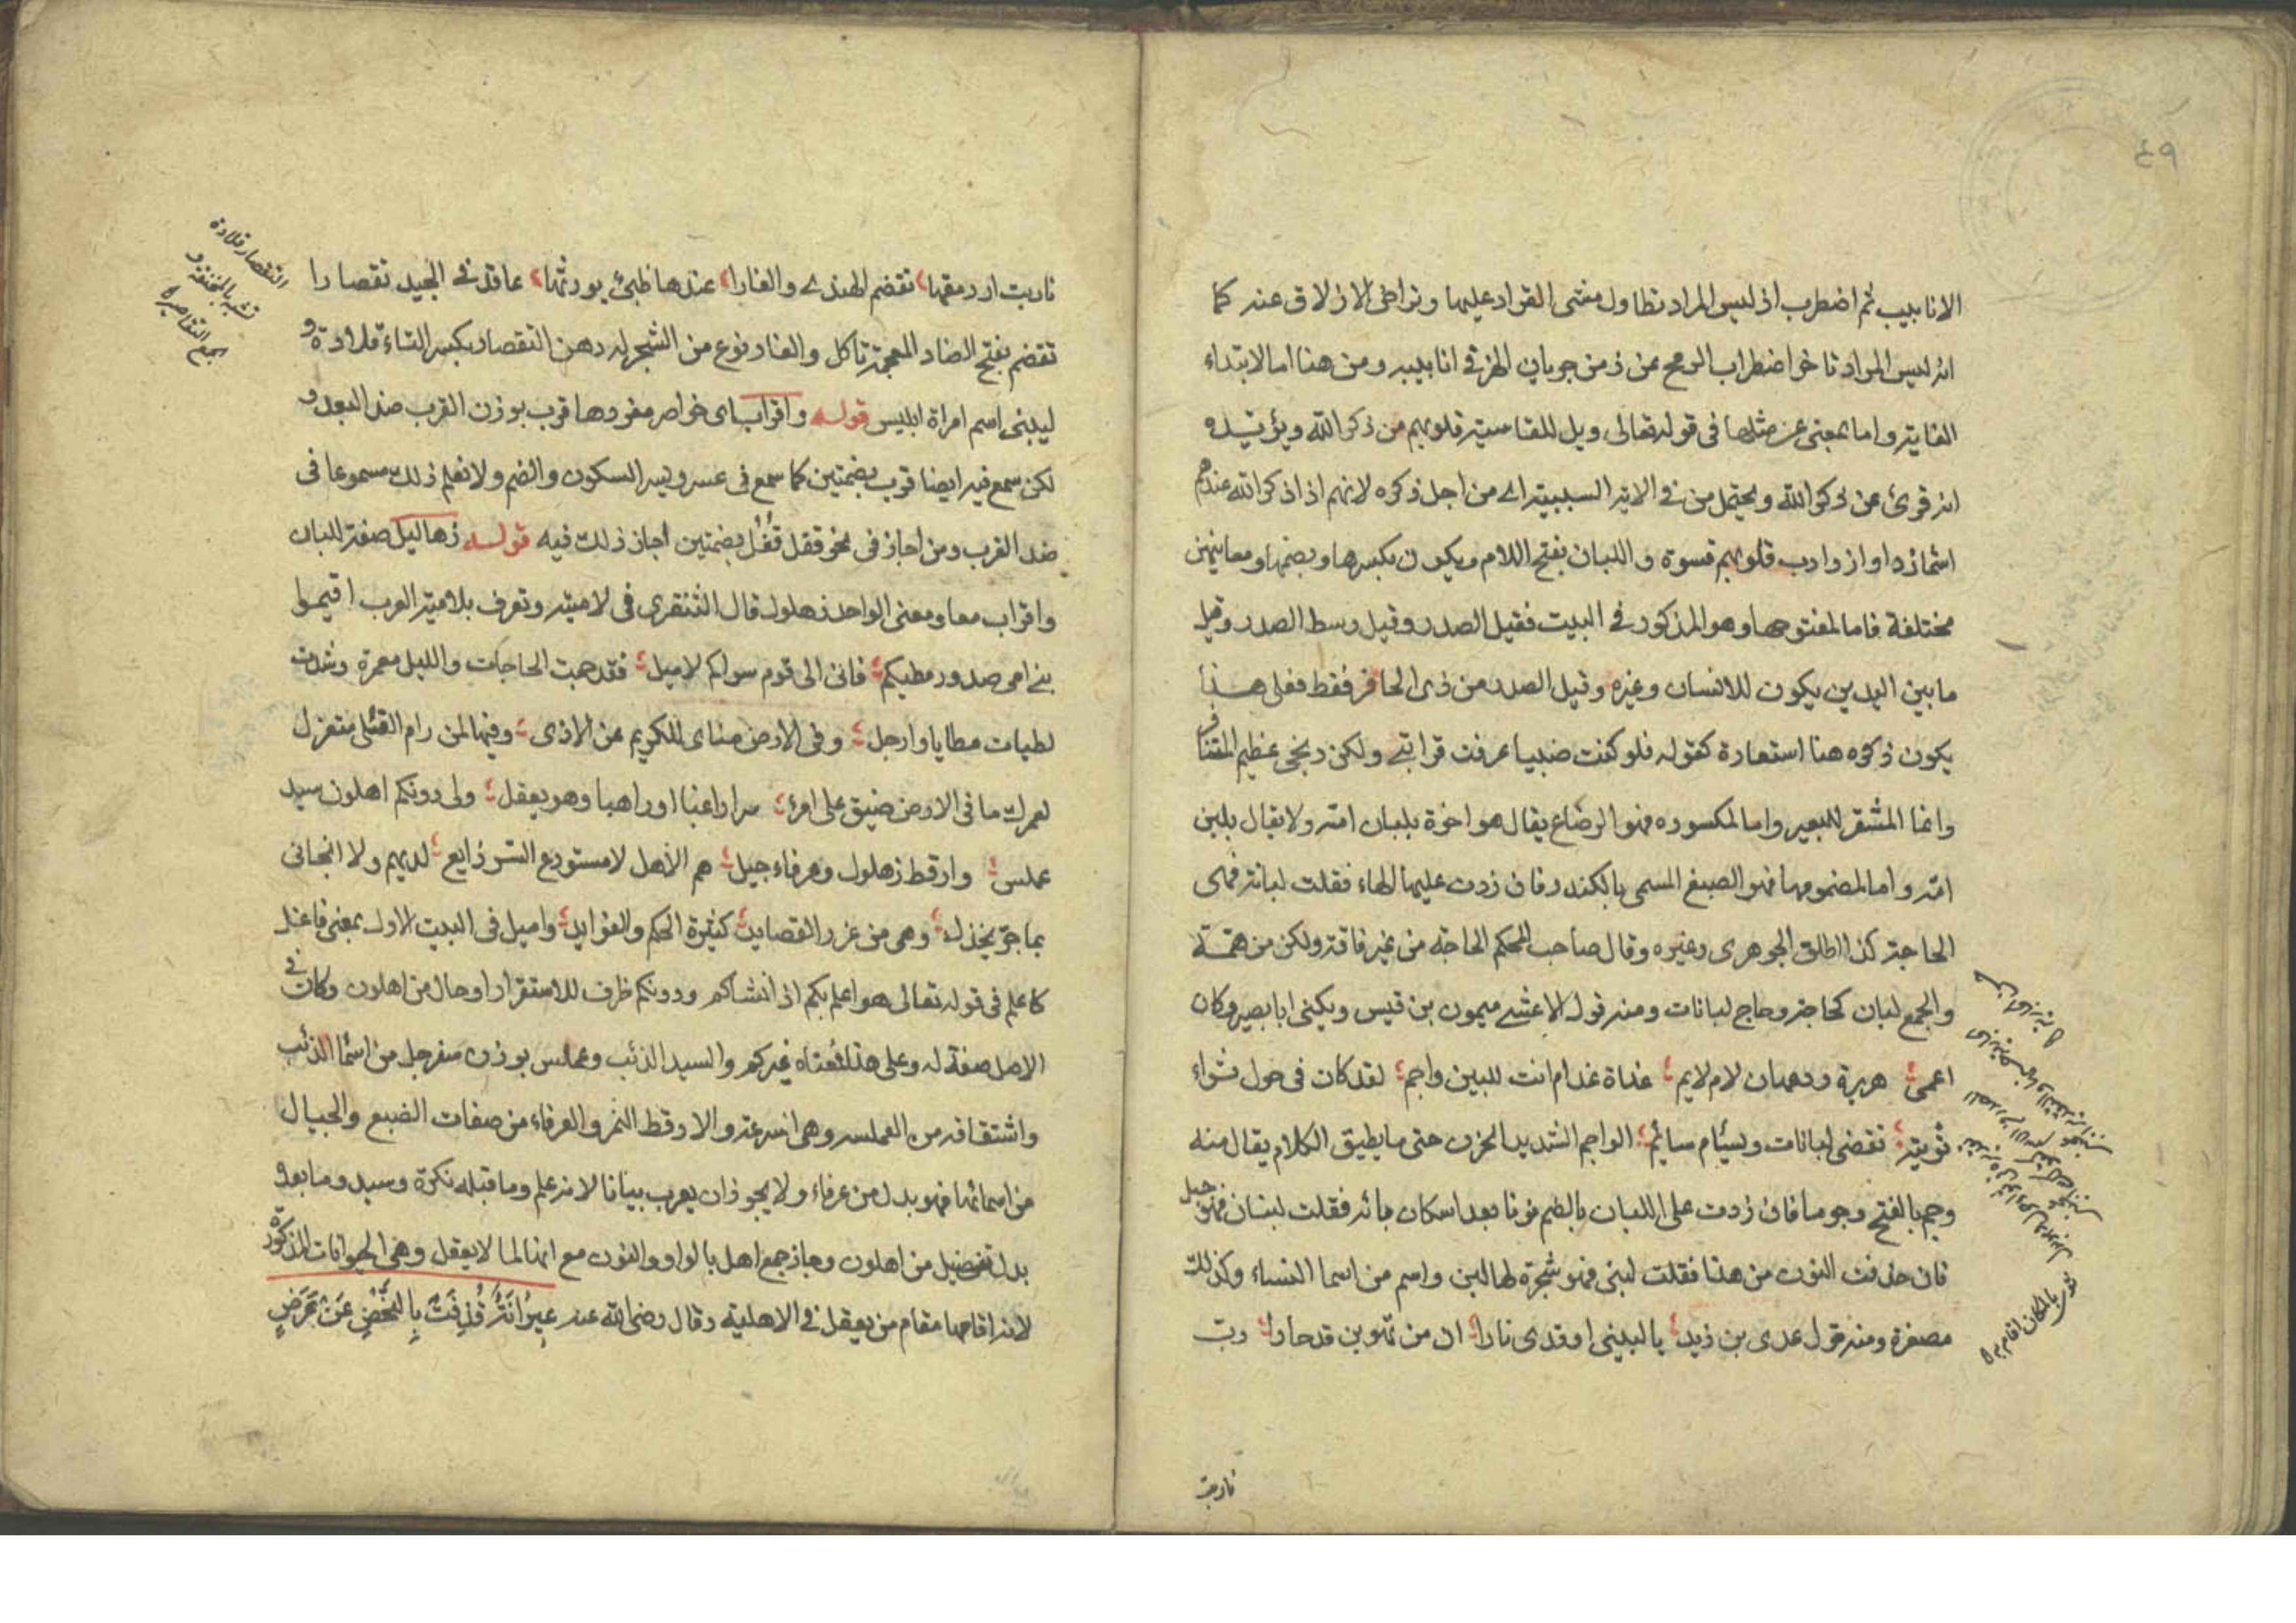 ٤٩
الانابيب ثم اضطرب اذ ليس المراد تطاول منتهى القراد عليها وتراخى الازلاق عنه كما
انه ليس المراد تاخر اضطراب الرمح عن زمن جريان الهز في انابيبه ومن هنا اما لابتداء
الغاية واما بمعنى عن مثلها فى قوله تعالى ويل للقاسية قلوبهم من ذكر الله ويؤيده
انه قرئ عن ذكر الله ويحتمل من في الاية السببية اى من اجل ذكره لانهم اذا ذكر الله عندهم
اشمأزوا وازدادت قلوبهم قسوة واللبان بفتح اللام ويكون بكسرها وبضمها ومعانيهن
مختلفة فاما المفتوحها وهو المذكور في البيت فقيل الصدر وقيل وسط الصدر وقيل
ما بين اليدين يكون للانسان وغيره وقيل الصدر من ذى الحافر فقط فعلى هذا
يكون ذكره هنا استعارة كقوله فلو كنت ضبيا عرفت قرابتي ولكن زنجى عظيم المشافر
وانما المشفر للبعير واما المكسوره فهو الرضاع يقال هو اخوه بلبان امه ولا يقال بلبن
امه واما المضمومها فهو الصمغ المسمى بالكندر فان زدت عليها الهاء فقلت لبانة فهى
الحاجة كذا اطلق الجوهرى وغيره وقال صاحب المحكم الحاجة من غير فاقة ولكن من همة
والجمع لبان كحاجة وحاج لبانات ومنه قول الاعشى ميمون بن قيس ويكنى ابا بصير وكان
اعمى هريرة ودعها وان لام لايم غداة غد ام انت للبين واجم لقد كان فى حول ثواء
ثويته تقضى لبانات ويسئام سائم الواجم الشديد الحزن حتى ما يطيق الكلام يقال منه
وجم بالفتح وجوما فان زدت على اللبان بالضم نونا بعد اسكان بائه فقلت لبنان فهو جبل
فان حذفت النون من هذا فقلت لبنى فهو شجرة لها لبن واسم من اسما النساء وكذلك
مصغرة ومنه قول عدى بن زيد يا لبينى اوقدى نارا ان من تهوين قد حارا رب
شوى بالمكان اقام به
نار بت
نار بت ارمقها تقضم الهندي والغارا عندها ظبى يورثها عاقد في الجيد تقصارا
تقضم بفتح الضاد المعجمة تاكل والغار نوع من الشجر له دهن التقصار بكسر التاء قلادة و
لبينى اسم امراة ابليس قوله واقراب اى خواصر مفردها قرب بوزن القرب ضد البعد و
لكن سمع فيه ايضا قرب بضمتين كما سمع فى عسر ويسر السكون والضم ولا نعلم ذلك مسموعا فى
ضد القرب ومن اجاز فى نحو قفل قفل بضمتين اجاز ذلك فيه قوله زهاليل صفة للبان
واقراب معا ومعنى الواحد زهلول قال الشنفرى فى لاميته وتعرف بلامية العرب اقيموا
بني امى صدور مطيكم فانى الى قوم سواكم لاميل فقد حمت الحاجات والليل مقمرة وشدت
لطيات مطايا وارحل وفى الارض مناى للكريم عن الاذى وفيها لمن رام القلى متعزل
لعمرك ما فى الارض ضيق على امرئ سرا راغبا او راهبا وهو يعقل ولى دونكم اهلون سيد
عملس وارقط زهلول وعرفاء جيل هم الاهل لا مستودع السر ذايع لديهم ولا الجانى
بما جر يخذل وهى من غرر القصايد كثيرة الحكم والفوايد واميل فى البيت الاول بمعنى فاعل
كاعلم فى قوله تعالى هو اعلم بكم اذ انشاكم ودونكم ظرف للاستقرار او حال من اهلون وكان في
الاصل صفة له وعلى هذا فمعناه غيركم والسيد الذئب وعملس بوزن سفرجل من اسما الذئب
واشتقاقه من العملسة وهى السرعة والارقط النمر والعرفاء من صفات الضبع والجيال
من اسمائها فهو بدل من عرفاء ولا يجوز ان يعرب بيانا لانه علم وما قبله نكرة وسيد وما بعده
بدل تفصيل من اهلون وجاز جمع اهل بالواو والنون مع انها لما لا يعقل وهى الحيوانات المذكورة
لانه اقامها مقام من يعقل في الاهلية وقال رضى الله عنه عيرانة قذفت بالنحض عن عرض
التقصار قلادة
تشبه بالمخنقة و
الجمع التقاصير